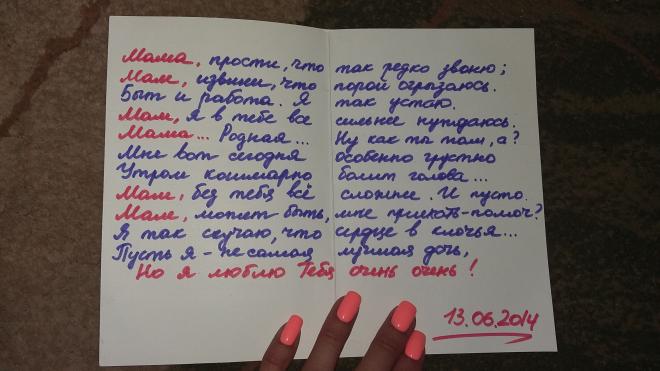 Мама, прости, что так редко звоню;
Мам, извини, что порой огрызаюсь.
Быт и работа. Я так устаю.
Мам, я в тебе все сильнее нуждаюсь.
Мама... Родная... Ну как ты там, а?
Мне вот сегодня особенно грустно
Утром кошмарно болит голова...
Мам, без тебя всё сложнее. И пусто.
Мам, может быть, мне приехать-помочь?
Я так скучаю, что сердце в клочья...
Пусть я - не самая лучшая дочь,
Но я люблю Тебя очень очень!
13.06.2014